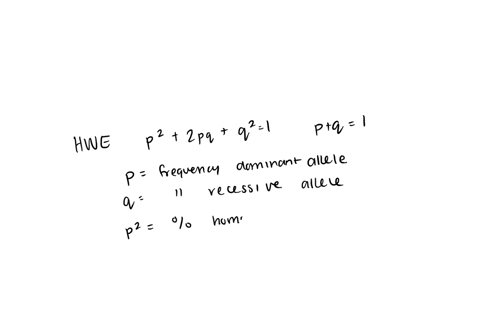 HWE p² + 2pq + q² = 1 p+q = 1
p = frequency dominant allele
q = " recessive allele
p² = % hom